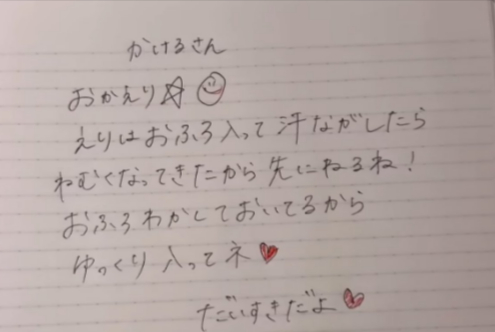 かけるさん
おかえり☆☺
えりはおふろ入って汗ながしたら
ねむくなってきたから先にねるね！
おふろわかしておいてるから
ゆっくり入ってネ♥
だいすきだよ♥